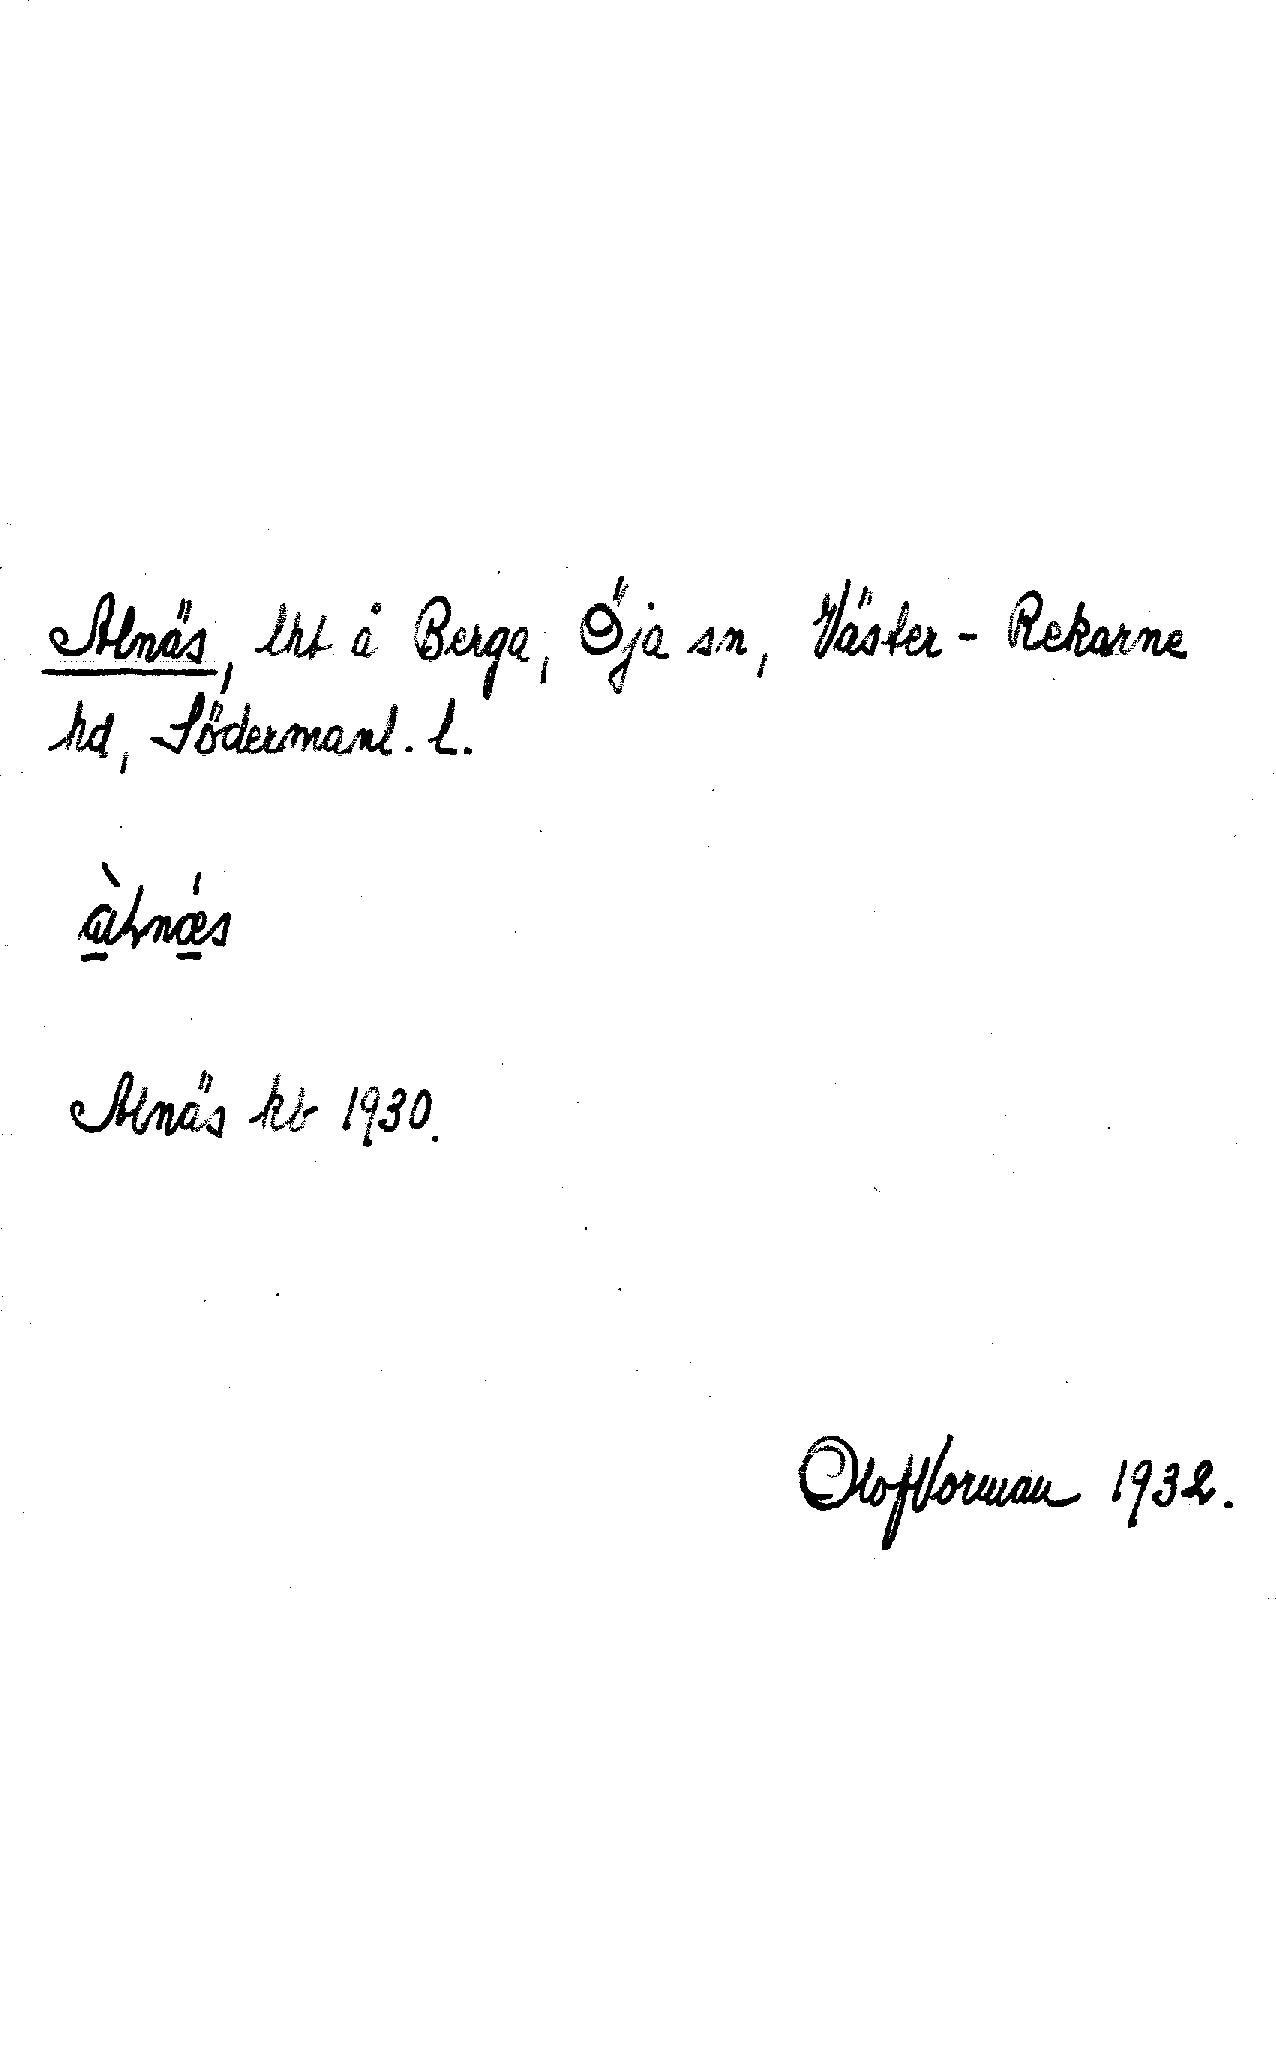 Alnäs, lht å Berga, Öja sn, Väster-Rekarne
hd, Södermanl. l.
àlnǽs
Alnäs kb 1930.
Olof Vorman 1932.